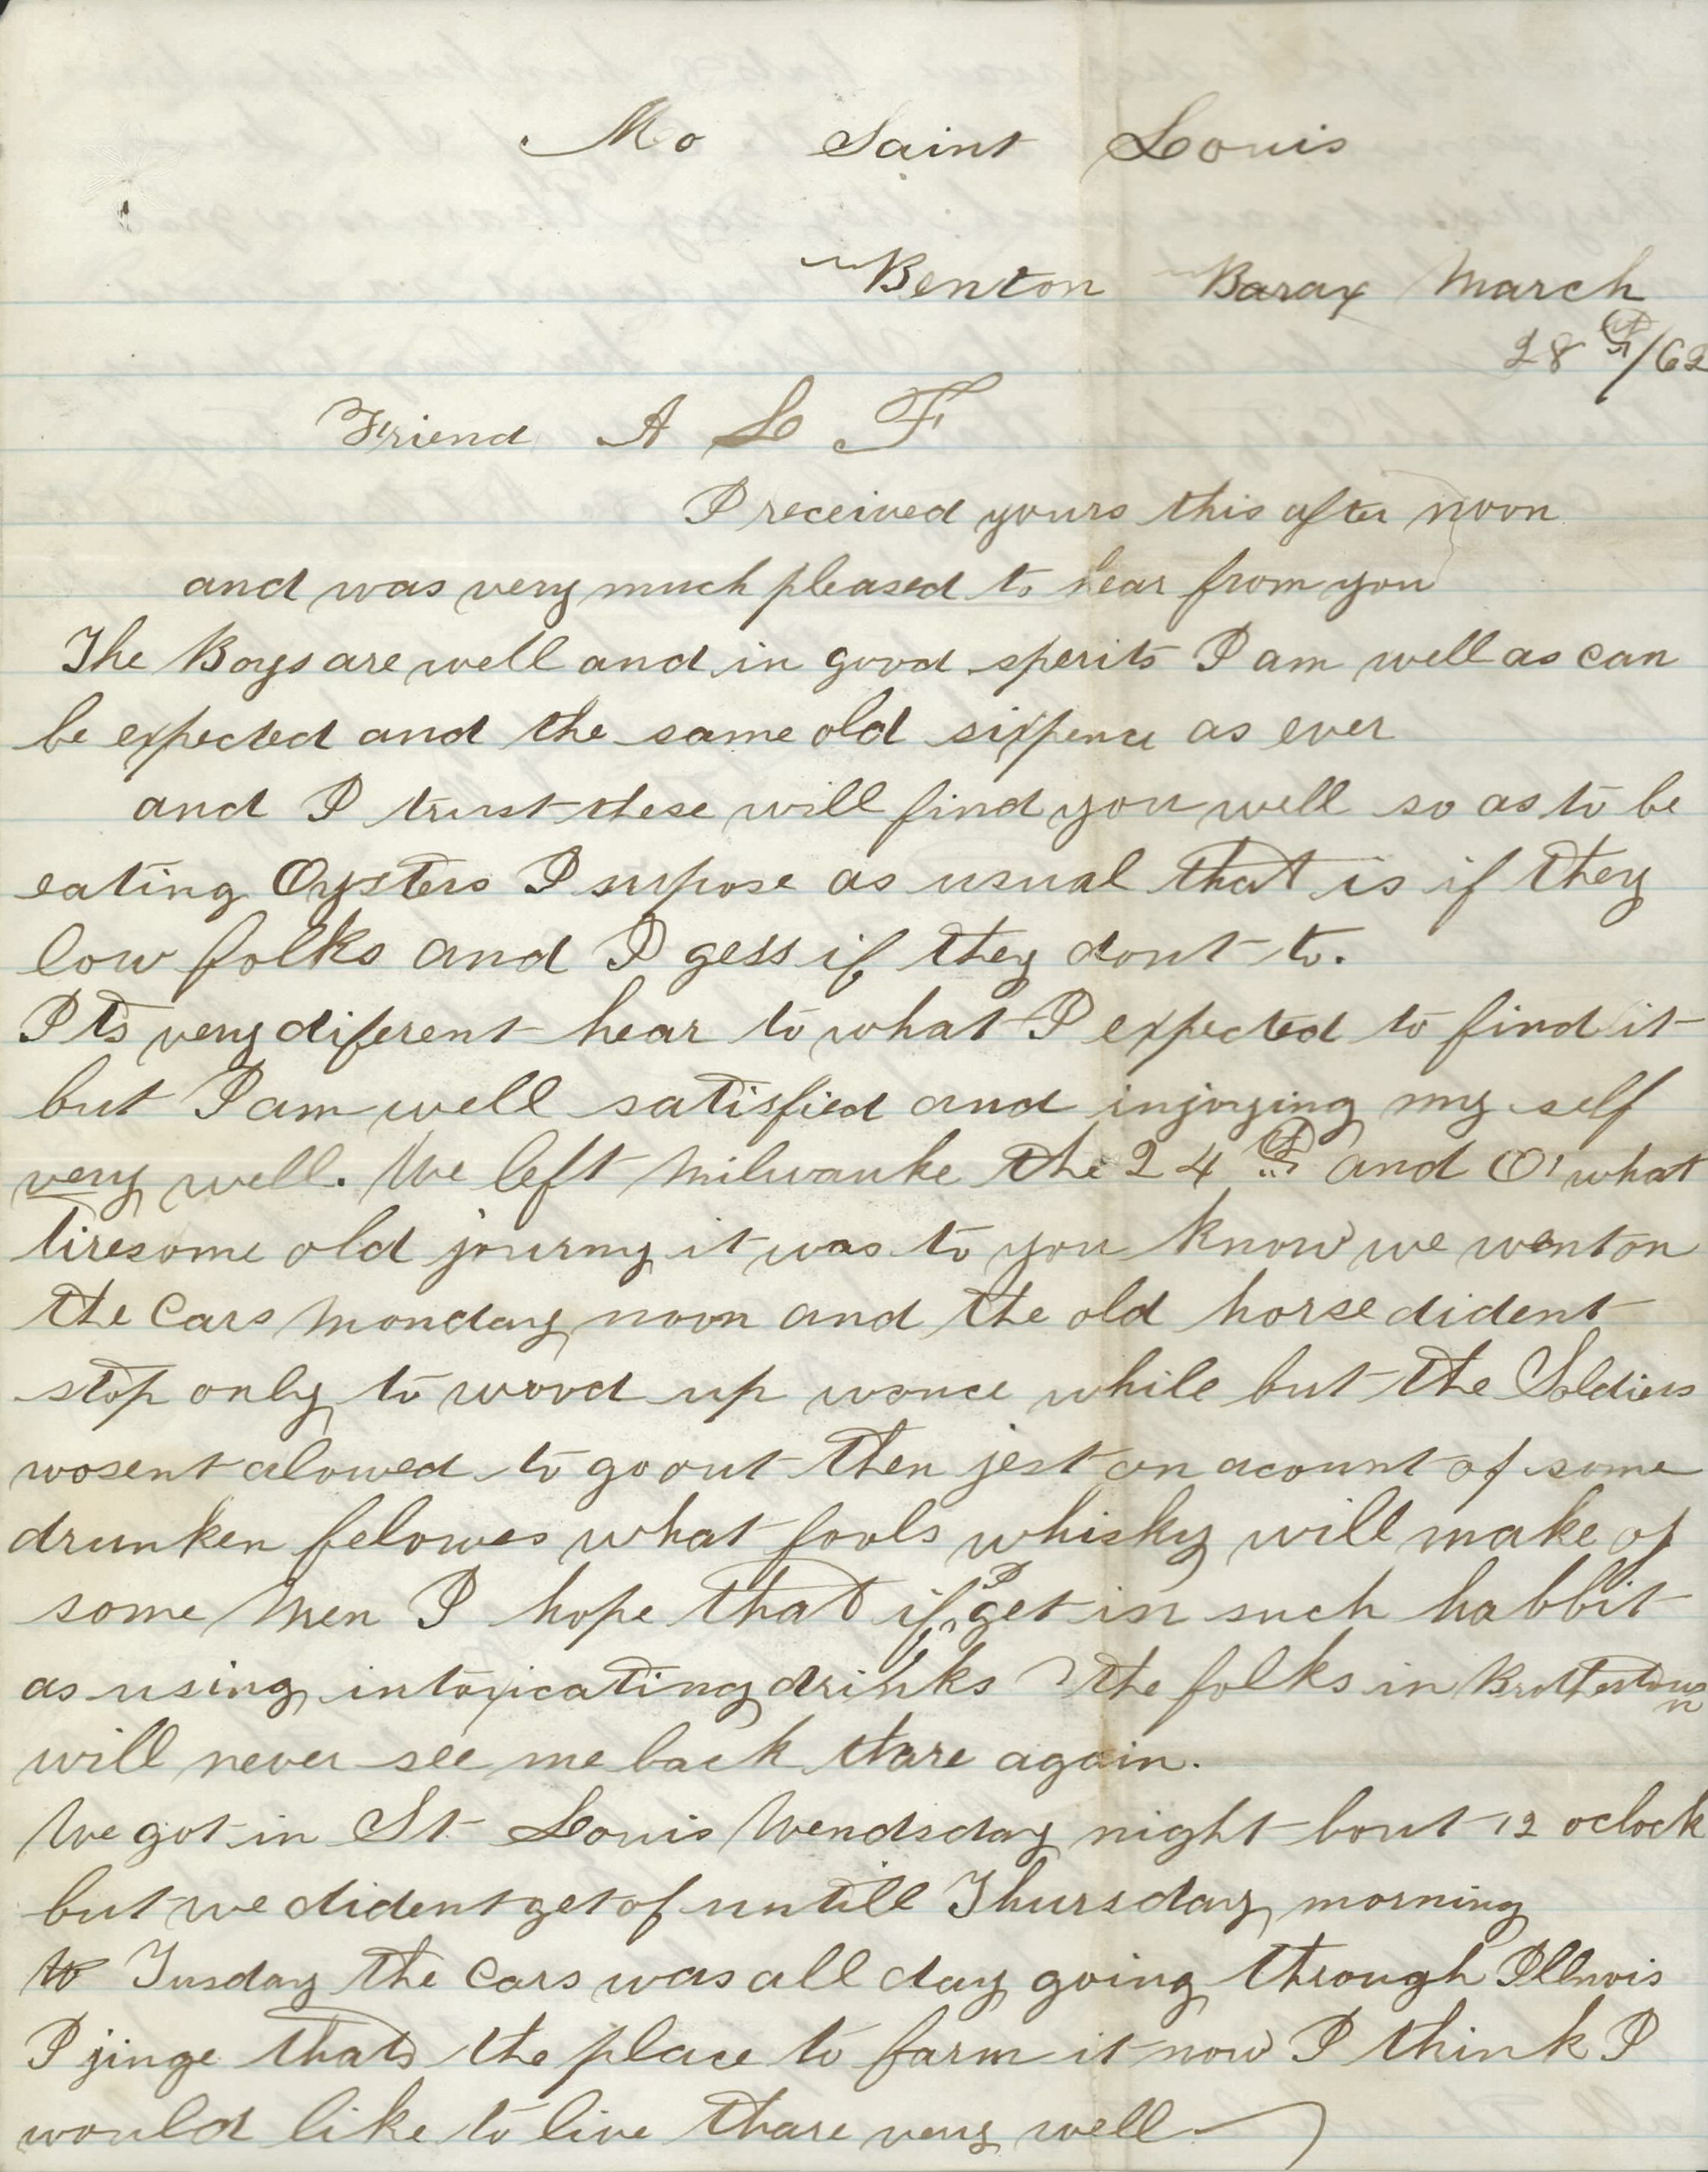 Mo Saint Louis
Benton Barax March
28th/62
Friend A L F
I received yours this after noon
and was very much pleased to hear from you
The Boys are well and in good sperits I am well as can
be expected and the same old sixpence as ever
and I trust these will find you well so as to be
eating Oysters I supose as usual that is if they
low folks and I gess if they dont to.
Its very diferent hear to what I expected to find it
but I am well satisfied and injoying my self
very well. We left Milwauke the 24th and O! what
tiresome old journy it was to you know we went on
the Cars Monday noon and the old horse dident
stop only to wood up wonce while but the Soldiers
wosent alowed to go out then jest on acount of some
drunken felowes what fools whisky will make of
some Men I hope that if I get in such habbit
as using intoxicating drinks the folks in Brothertown
will never see me back thare again.
We got in St Louis Wendsday night bout 12 oclock
but we dident get of untill Thursday morning
to Tusday the Cars was all day going through Illnois
I jinge thats the place to farm it now I think I
would like to live thare very well